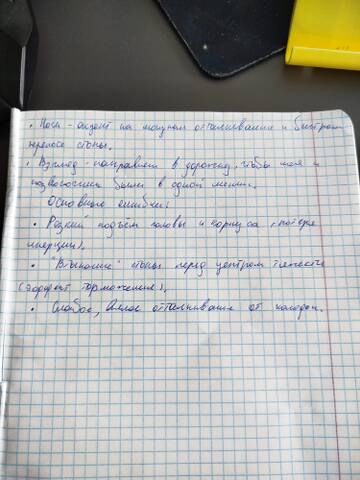 • Ноги - акцент на мощном отталкивании и быстром
переносе стопы.
• Взгляд - направлен в дорожку, чтобы шея и
позвоночник были в одной линии.
Основные ошибки:
• Резкий подъём головы и корпуса (потеря
инерции).
• "Втыкание" стопы перед центром тяжести
(эффект торможения).
• Слабое, вялое отталкивание от колодок.